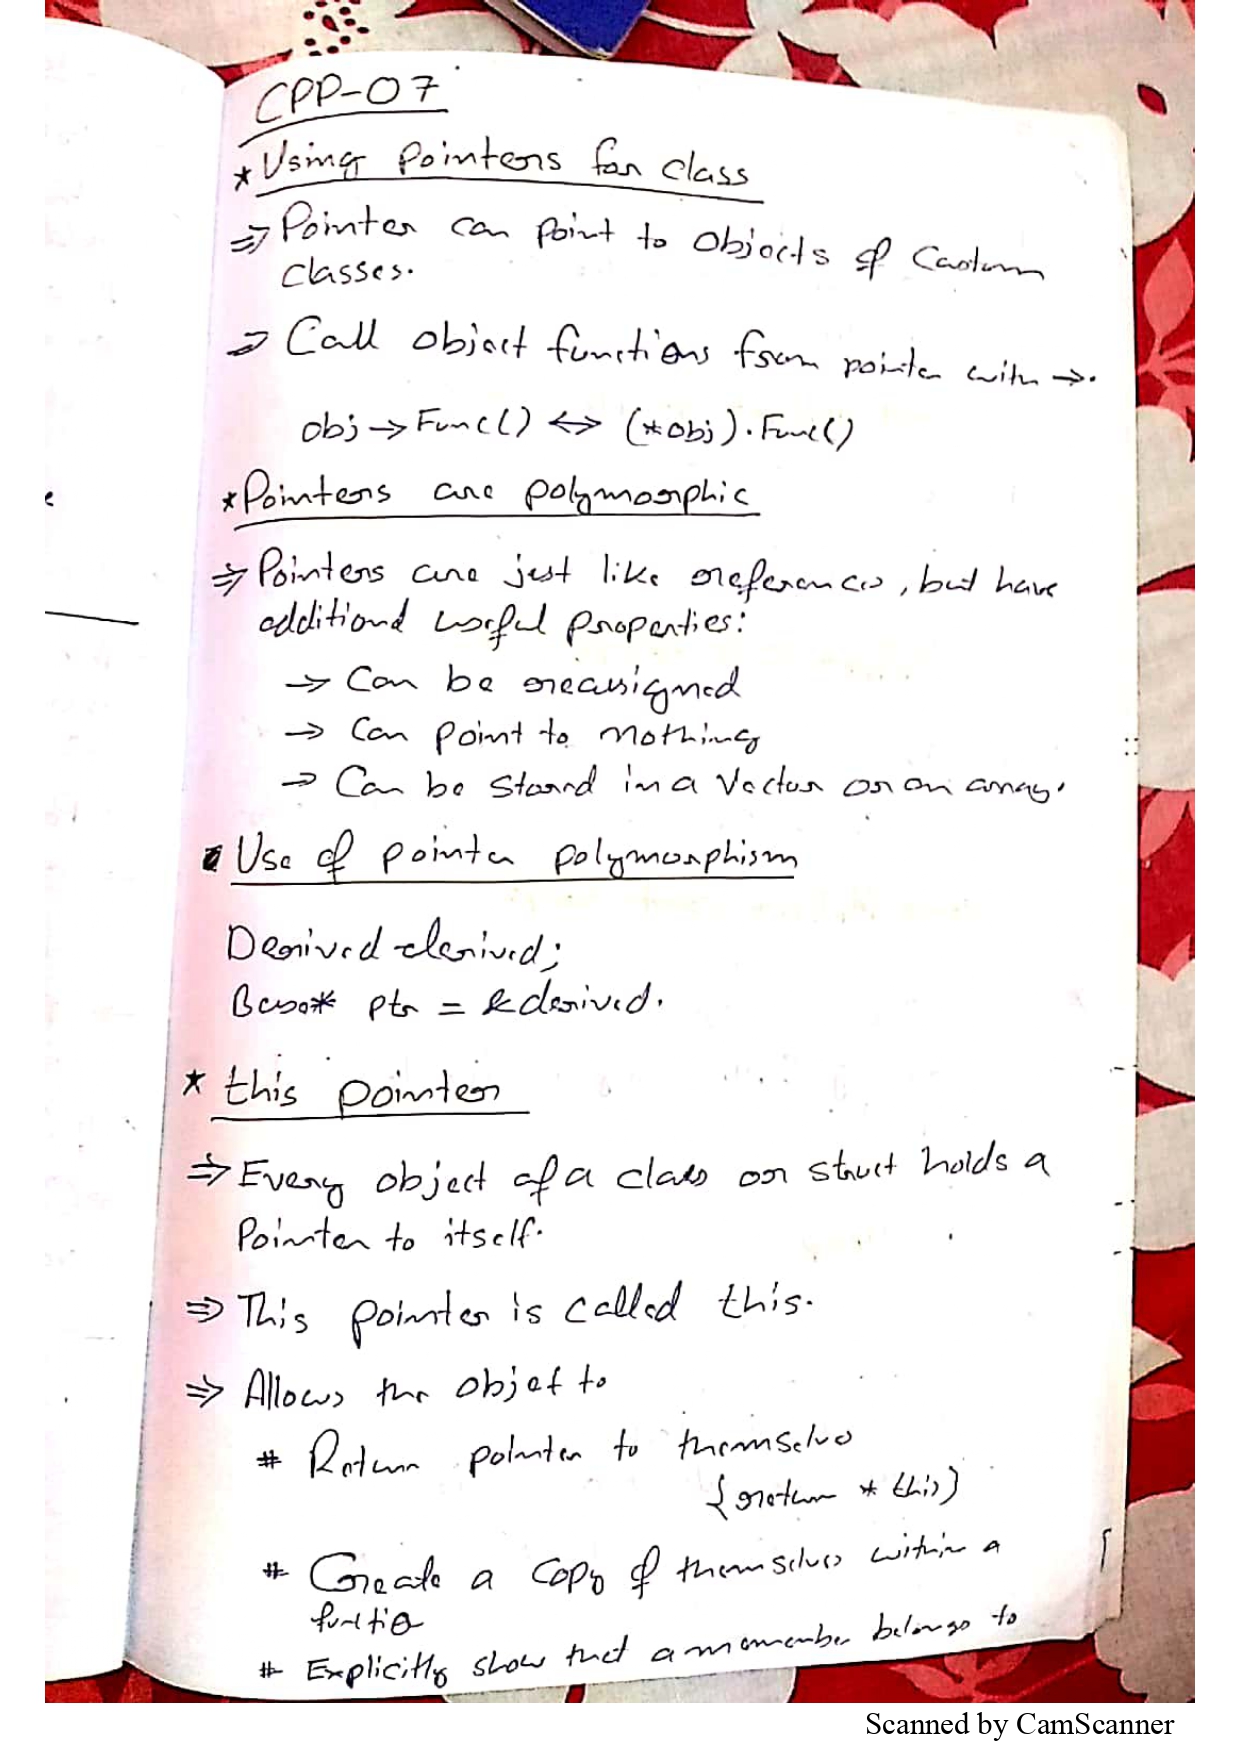 CPP-07
* Using Pointers for class
⇒ Pointer can point to Objects of Custom
classes.
⇒ Call object functions from pointer with →.
obj → Func() ⟺ (*obj).Func()
* Pointers are polymorphic
⇒ Pointers are just like references, but have
additional useful properties:
→ Can be reassigned
→ Can point to nothing
→ Can be stored in a Vector or an array.
Use of pointer polymorphism
Derived derived;
Base* ptr = &derived.
* this pointer
⇒ Every object of a class or struct holds a
Pointer to itself.
⇒ This pointer is called this.
⇒ Allows the objet to
# Return pointer to themselves
{return * this}
# Create a copy of themselves within a
# Explicitly show that a memember belongs to
Scanned by CamScanner